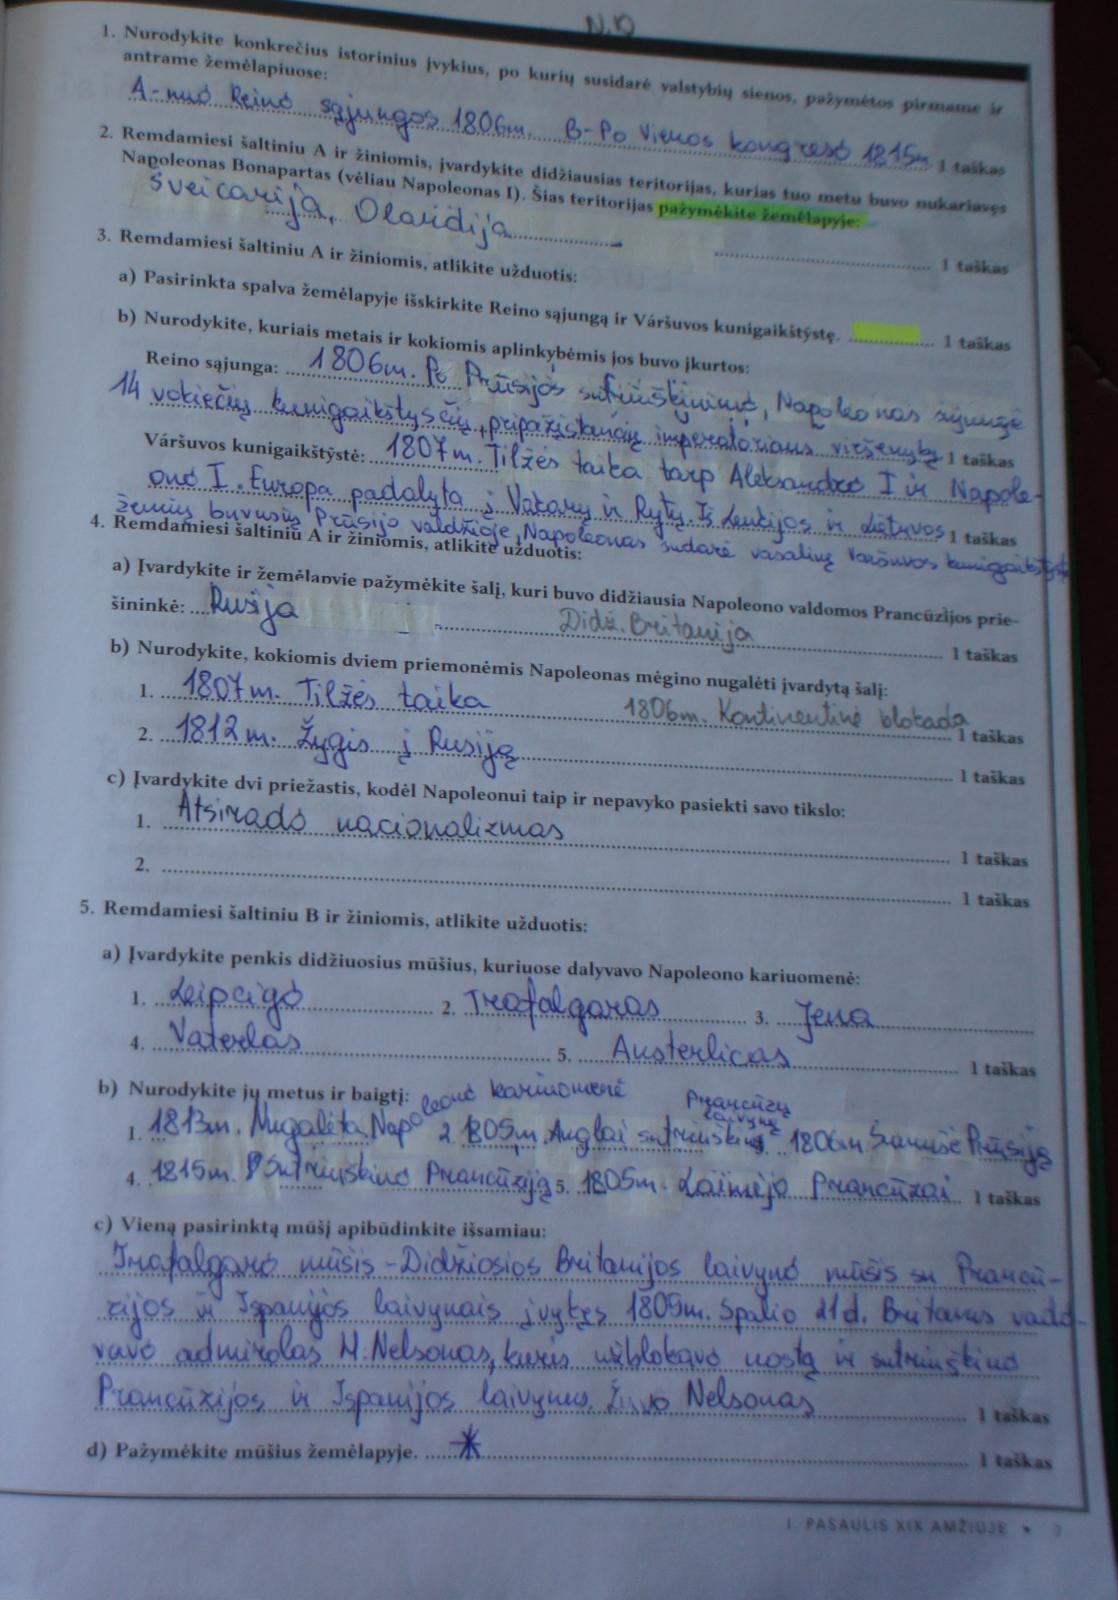 N.D
1. Nurodykite konkrečius istorinius įvykius, po kurių susidarė valstybių sienos, pažymėtos pirmame ir
antrame žemėlapiuose:
A-nuo Reino sąjungos 1806m. B-Po Vienos kongreso 1815m. 1 taškas
2. Remdamiesi šaltiniu A ir žiniomis, įvardykite didžiausias teritorijas, kurias tuo metu buvo nukariavęs
Napoleonas Bonapartas (vėliau Napoleonas I). Šias teritorijas pažymėkite žemėlapyje:
Šveicarija, Olandija 1 taškas
3. Remdamiesi šaltiniu A ir žiniomis, atlikite užduotis:
a) Pasirinkta spalva žemėlapyje išskirkite Reino sąjungą ir Váršuvos kunigaikštýstę. 1 taškas
b) Nurodykite, kuriais metais ir kokiomis aplinkybėmis jos buvo įkurtos:
Reino sąjunga: 1806m. Po Prūsijos sutriuškinimo, Napoleonas sujungė
14 vokiečių kunigaikštysčių, pripažįstančių imperatoriaus viršenybę 1 taškas
Váršuvos kunigaikštýstė: 1807m. Tilžės taika tarp Aleksandro I ir Napole-
ono I. Europa padalyta į Vakarų ir Rytų. Iš Lenkijos ir Lietuvos 1 taškas
žemių buvusių Prūsijo valdžioje, Napoleonas sudarė vasalinę Varšuvos kunigaikštystę
4. Remdamiesi šaltiniu A ir žiniomis, atlikite užduotis:
a) Įvardykite ir žemėlapyje pažymėkite šalį, kuri buvo didžiausia Napoleono valdomos Prancūzijos prie-
šininkė: Rusija Didž. Britanija 1 taškas
b) Nurodykite, kokiomis dviem priemonėmis Napoleonas mėgino nugalėti įvardytą šalį:
1. 1807m. Tilžės taika 1806m. Kontinentinė blokada 1 taškas
2. 1812m. Žygis į Rusiją 1 taškas
c) Įvardykite dvi priežastis, kodėl Napoleonui taip ir nepavyko pasiekti savo tikslo:
1. Atsirado nacionalizmas 1 taškas
2. 1 taškas
5. Remdamiesi šaltiniu B ir žiniomis, atlikite užduotis:
a) Įvardykite penkis didžiuosius mūšius, kuriuose dalyvavo Napoleono kariuomenė:
1. Leipcigo 2. Trafalgaras 3. Jena
4. Vaterlas 5. Austerlicas 1 taškas
b) Nurodykite jų metus ir baigtį:
1. 1813m. Nugalėta Napoleono kariuomenė 2 1805m. Anglai sutriuškino Prancūzų laivyną 3. 1806m Sumušė Prūsiją
4. 1815m. Sutriuškino Prancūziją 5. 1805m. Laimėjo Prancūzai 1 taškas
c) Vieną pasirinktą mūšį apibūdinkite išsamiau:
Trafalgaro mūšis - Didžiosios Britanijos laivyno mūšis su Prancū-
zijos ir Ispanijos laivynais įvykęs 1805m. Spalio 21d. Britams vado-
vavo admirolas H. Nelsonas, kuris užblokavo uostą ir sutriuškino
Prancūzijos ir Ispanijos laivynus. Žuvo Nelsonas 1 taškas
d) Pažymėkite mūšius žemėlapyje. 1 taškas
I PASAULIS XIX AMŽIUJE • 7